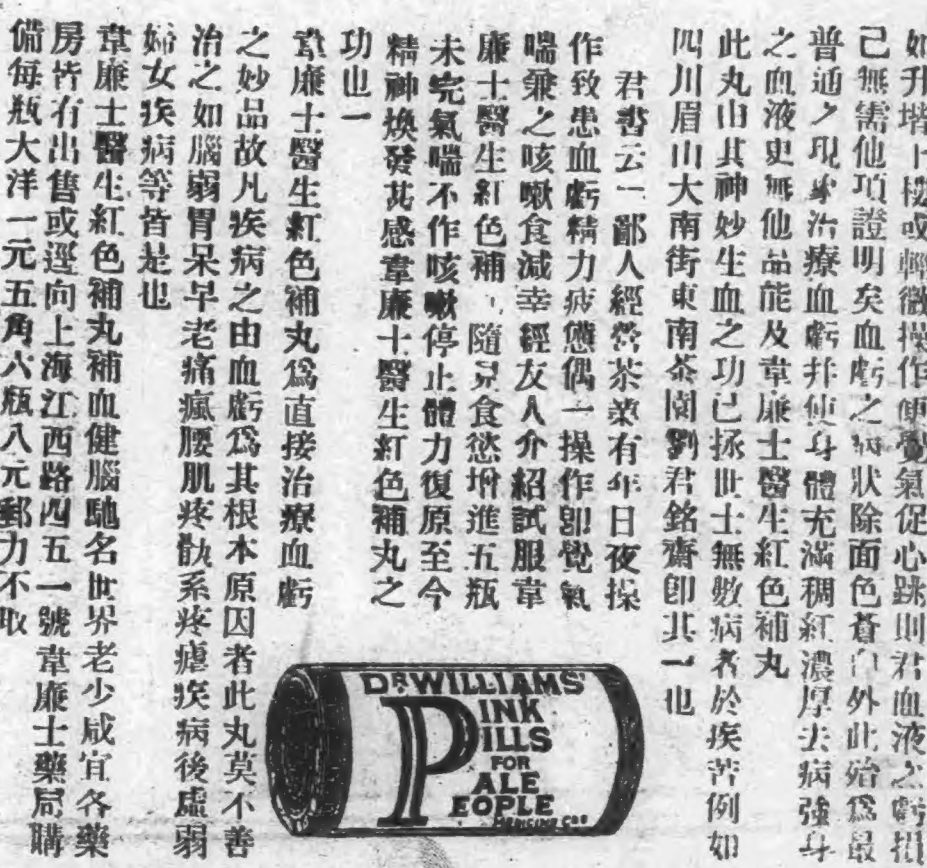 如升堦上樓或輕微操作便覺氣促心跳則君血液之虧損
已無需他項證明矣血虧之病狀除面色蒼白外此殆爲最
普通之現象治療血虧并使身體充滿稠紅濃厚去病強身
之血液史無他品能及韋廉士醫生紅色補丸
此丸由其神妙生血之功已拯世士無數病者於疾苦例如
四川眉山大南街東南茶園劉君銘齋卽其一也
君書云一鄙人經營茶業有年日夜操
作致患血虧精力疲憊偶一操作卽覺氣
喘兼之咳嗽食減幸經友人介紹試服韋
廉士醫生紅色補隨見食慾增進五瓶
未完氣喘不作咳嗽停止體力復原至今
精神煥發甚感韋廉士醫生紅色補丸之
功也一
韋廉士醫生紅色補丸爲直接治療血虧
之妙品故凡疾病之由血虧爲其根本原因者此丸莫不善
治之如腦弱胃呆早老痛瘋腰肌疼骱系疼瘧疾病後虛弱
婦女疾病等皆是也
韋廉士醫生紅色補丸補血健腦馳名世界老少咸宜各藥
房皆有出售或逕向上海江西路四五一號韋廉士藥局購
備每瓶大洋一元五角六瓶八元郵力不取
DR WILLIAMS'
PINK
PILLS
FOR
PALE
PEOPLE
MEDICINE CO